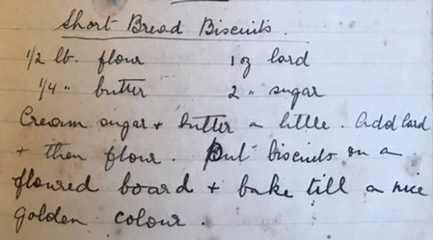 Short Bread Biscuits.
1/2 lb. flour 1 oz lard
1/4 " butter 2 " sugar
Cream sugar + butter a little. Add lard
+ then flour. Put biscuits on a
floured board + bake till a nice
golden colour.